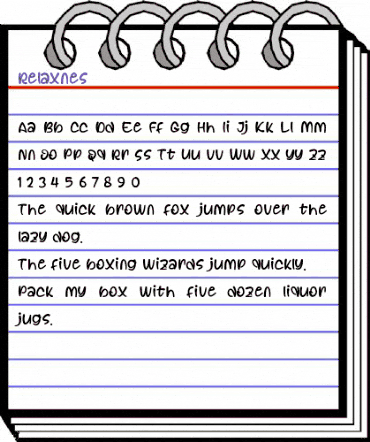 Relaxnes
Aa Bb Cc Dd Ee Ff Gg Hh Ii Jj Kk Ll Mm
Nn Oo Pp Qq Rr Ss Tt Uu Vv Ww Xx Yy Zz
1 2 3 4 5 6 7 8 9 0
The quick brown fox jumps over the
lazy dog.
The five boxing wizards jump quickly.
Pack my box with five dozen liquor
jugs.